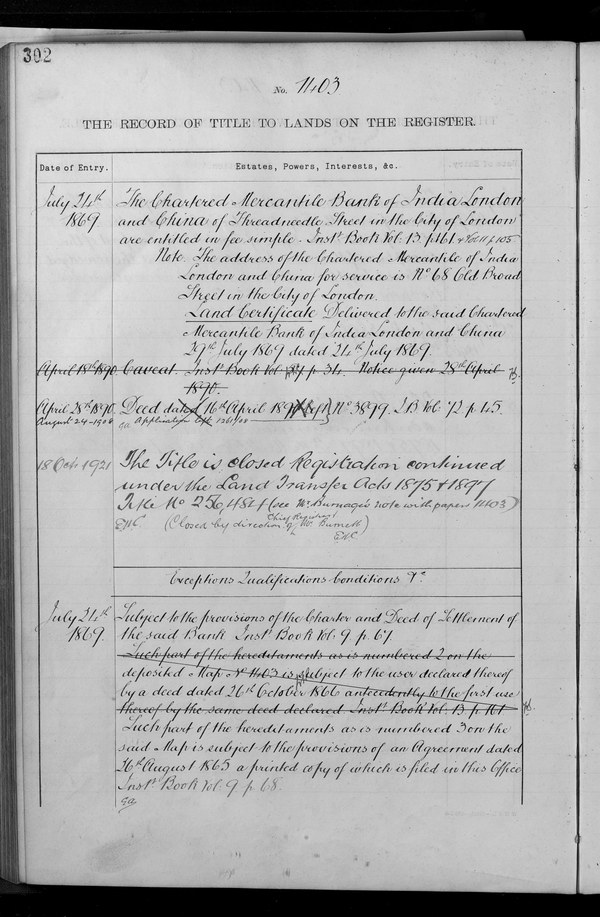 302
No. 1403
THE RECORD OF TITLE TO LANDS ON THE REGISTER.
Date of Entry. Estates, Powers, Interests, &c.
July 24th The Chartered Mercantile Bank of India London
1869 and China of Threadneedle Street in the City of London
are entitled in fee simple. Instt Book Vol. 13. p 161. & Vol 11 p 105
Note. The address of the Chartered Mercantile of India
London and China for service is No 68 Old Broad
Street in the City of London.
Land Certificate Delivered to the said Chartered
Mercantile Bank of India London and China
29th July 1869 dated 24th July 1869.
April 18th 1890 Caveat. Instt Book Vol p. 34. Notice given 28th April
1890.
April 28th 1890. Deed dated 16th April 1890 No 3899. I B Vol 72 p 45.
August 24 - 1908 Application left
18 Octr 1921 The Title is closed Registration continued
under the Land Transfer Acts 1875 & 1897
Title No 256,484 (see Mr Burnage's note with papers 1403)
EHC (Closed by direction of Chief Registrar Mr Burnett)
EHC
Exceptions Qualifications Conditions &c
July 24th Subject to the provisions of the Charter and Deed of Settlement of
1869 the said Bank Instt Book Vol. 9. p. 67
Such part of the hereditaments as is numbered 2 on the
deposited Map No 1403 is subject to the user declared thereof
by a deed dated 26th October 1866 antecedently to the first use
thereof by the same deed declared Instt Book Vol. 13 p. 161
Such part of the hereditaments as is numbered 3 on the
said Map is subject to the provisions of an Agreement dated
26th August 1865 a printed copy of which is filed in this Office
Instt Book Vol. 9 p. 68.